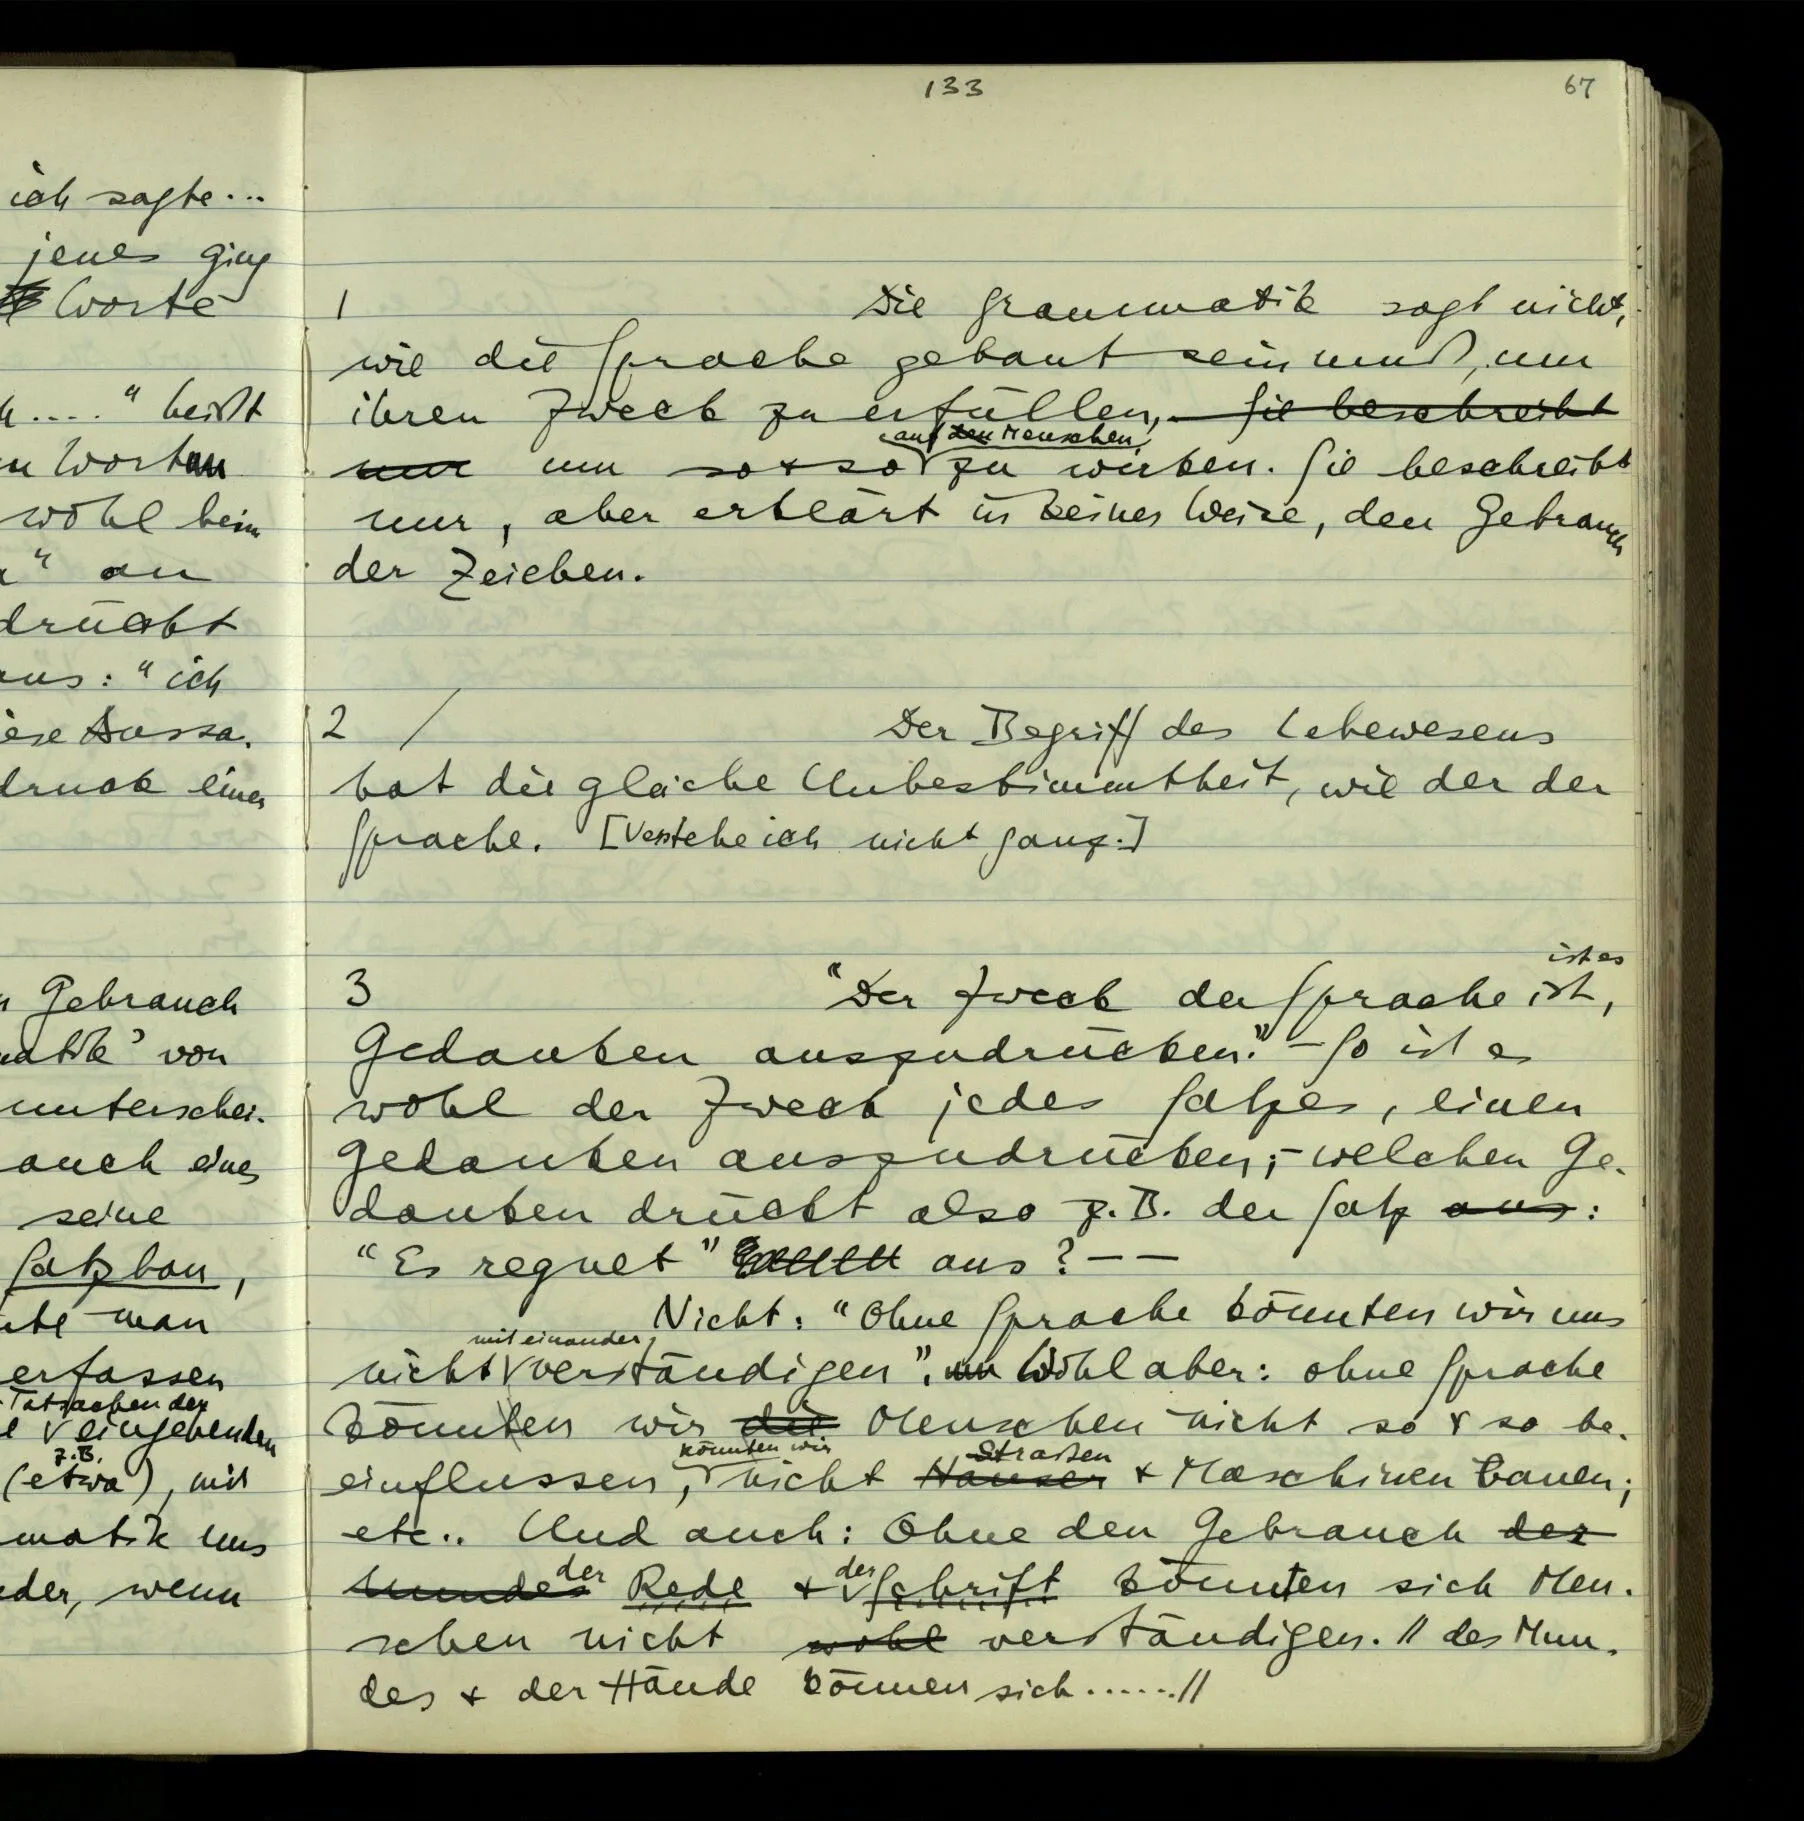 ich sagte...
jenes ging
Worte
h...." heißt
n Worten
wohl beim
" an
drückt
aus: "ich
iese Aussa-
druck einer
n Gebrauch
matik' von
unterschei-
auch eines
seine
Satzbau,
man
erfassen
Tatsachen der
eingehenden
z.B.
(etwa), mit
matik uns
der, wenn
133
67
1 Die Grammatik sagt nicht,
wie die Sprache gebaut sein muß, um
ihren Zweck zu erfüllen, Sie beschreibt
auf den Menschen
nur um so & so zu wirken. Sie beschreibt
nur, aber erklärt in keiner Weise, den Gebrauch
der Zeichen.
2 / Der Begriff des Lebewesens
hat die gleiche Unbestimmtheit, wie der der
Sprache. [Verstehe ich nicht ganz.]
ist es
3 "Der Zweck der Sprache ist,
Gedanken auszudrücken." – So ist es
wohl der Zweck jedes Satzes, einen
Gedanken auszudrücken; – welchen Ge-
danken drückt also z.B. der Satz aus:
"Es regnet" aus? – –
Nicht: "Ohne Sprache könnten wir uns
miteinander
nicht verständigen". Wohl aber: ohne Sprache
könnten wir die Menschen nicht so & so be-
könnten wir Straßen
einflussen, nicht Häuser & Maschinen bauen;
etc.. Und auch: Ohne den Gebrauch des
der der
Mundes Rede & Schrift könnten sich Men-
schen nicht wohl verständigen. // des Mun-
des & der Hände können sich ......//